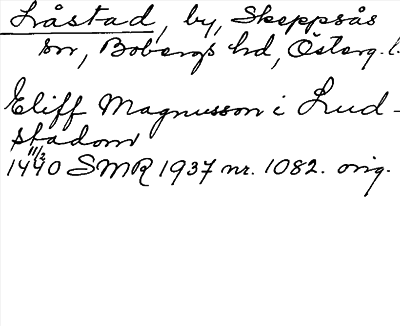 Låstad, by, Skeppsås
sn, Bobergs hd, Österg. l.
Eliff Magnusson i Lud-
stadom
11/2
1440 SMR 1937 nr. 1082. orig.